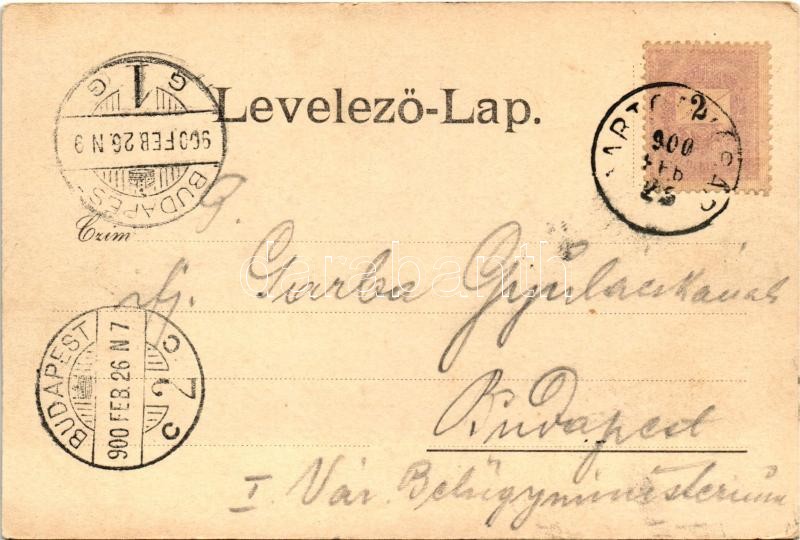 Levelező-Lap.
G 1 G
900 FEB.26.N 9
BUDAPES-
2
900
FEB
25
Czím
Ifj. Garba Gyulácskának
darabanth
BUDAPEST
900 FEB.26 N 7
C 7 2 C
Budapest
I Vár. Belügyministerium